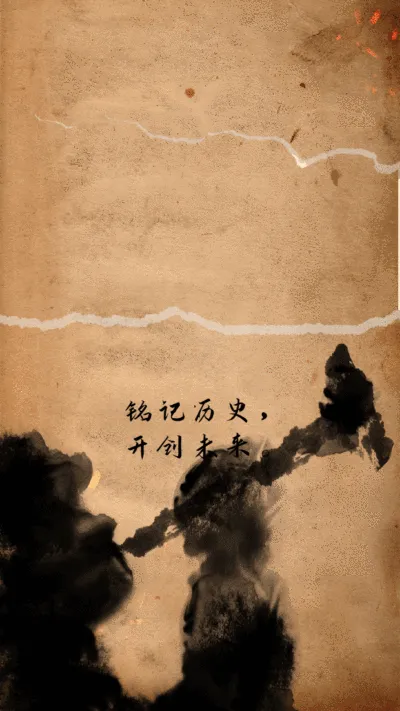 铭记历史，
开创未来